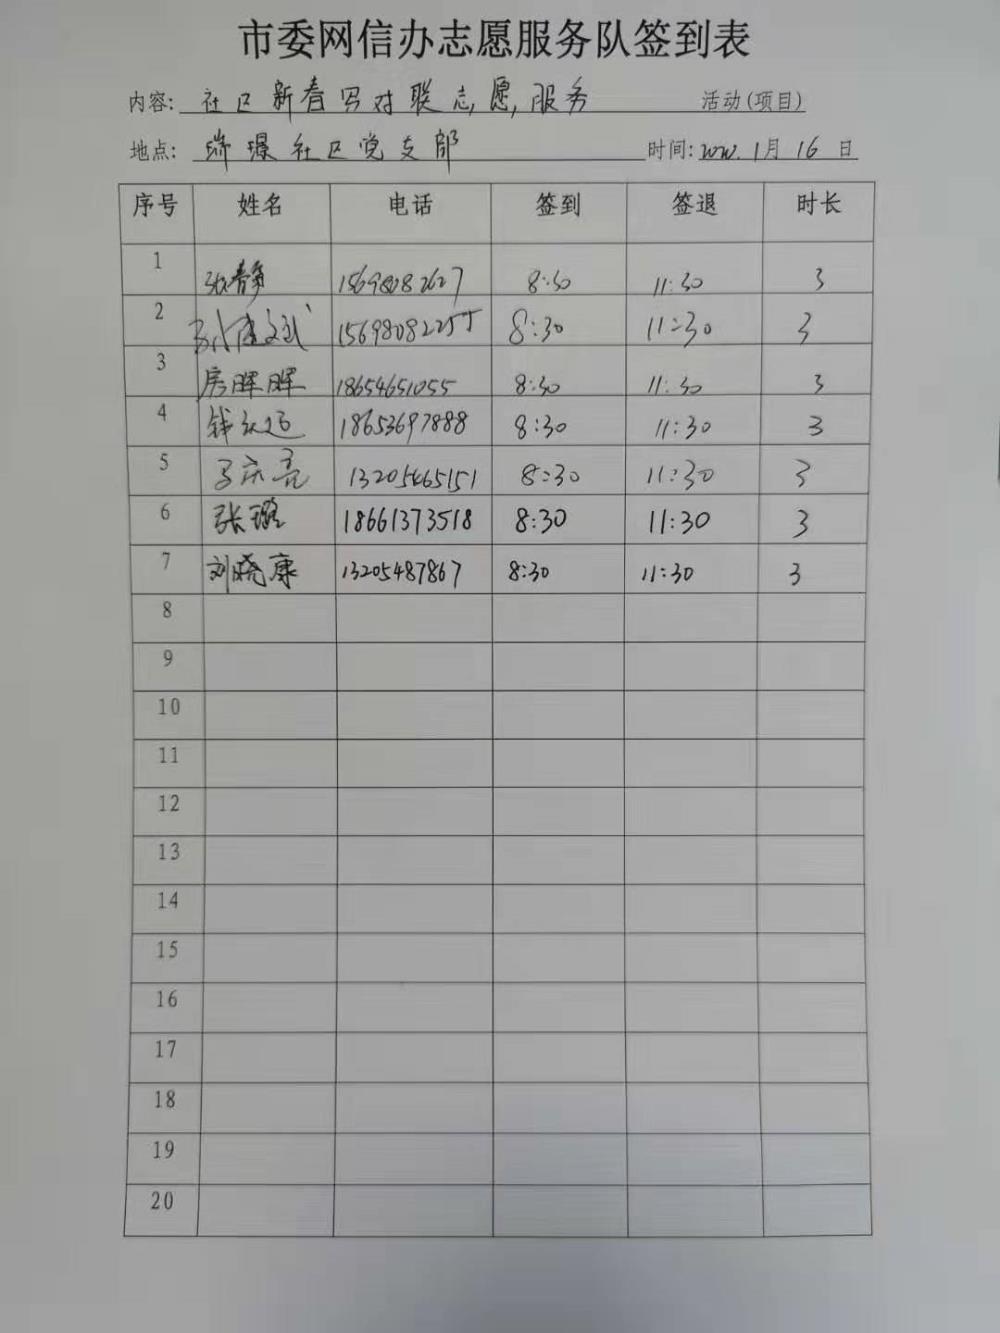 市委网信办志愿服务队签到表
内容: 社区新春写对联志愿服务 活动(项目)
地点: 瑞璟社区党支部 时间: 2020.1月16日
序号 姓名 电话 签到 签退 时长
1 张静 15698082627 8:30 11:30 3
2 15698082255 8:30 11:30 3
3 房晖晖 18654651055 8:30 11:30 3
4 18653697888 8:30 11:30 3
5 马庆亮 13205465151 8:30 11:30 3
6 张璐 18661373518 8:30 11:30 3
7 刘晓康 13205487867 8:30 11:30 3
8
9
10
11
12
13
14
15
16
17
18
19
20